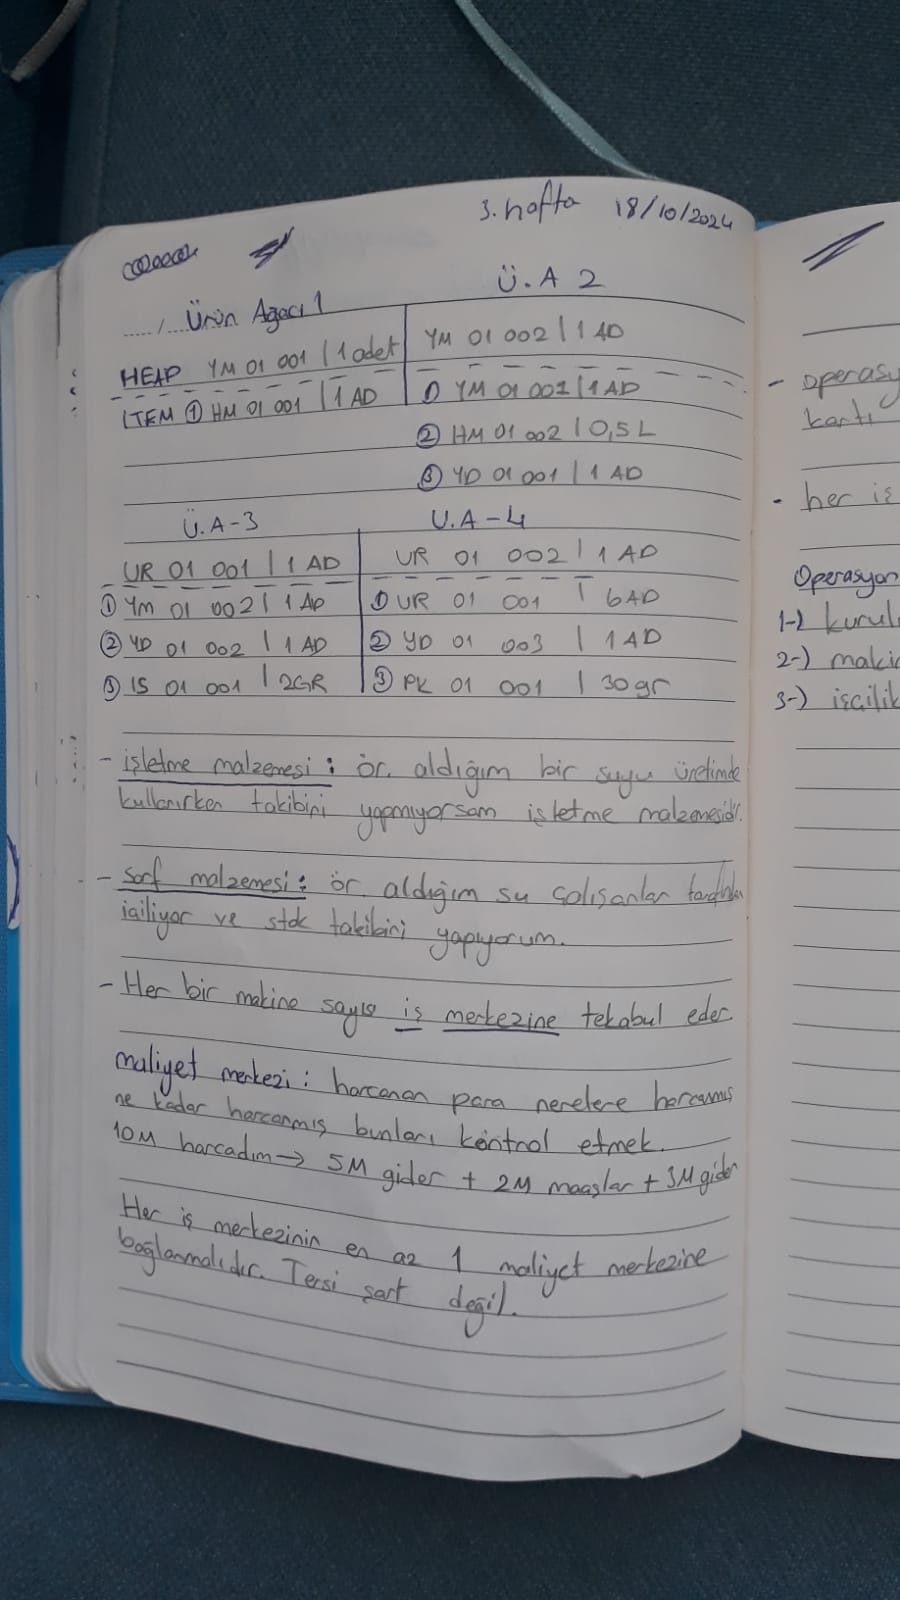 3. hafta 18/10/2024
Ürün Ağacı 1
HEAP YM 01 001 | 1 adet
ITEM ① HM 01 001 | 1 AD
Ü.A 2
YM 01 002 | 1 AD
① YM 01 001 | 1 AD
② HM 01 002 | 0,5 L
③ YD 01 001 | 1 AD
Ü.A-3
UR 01 001 | 1 AD
① YM 01 002 | 1 AD
② YD 01 002 | 1 AD
③ IS 01 001 | 2GR
U.A-4
UR 01 002 | 1 AD
① UR 01 001 | 6AD
② YD 01 003 | 1 AD
③ PK 01 001 | 30 gr
- işletme malzemesi : ör. aldığım bir suyu üretimde
kullanırken takibini yapmıyorsam işletme malzemesidir.
- Sarf malzemesi : ör. aldığım su çalışanlar tarafından
içiliyor ve stok takibini yapıyorum.
- Her bir makine sayısı iş merkezine tekabul eder.
maliyet merkezi : harcanan para nerelere harcanmış
ne kadar harcanmış bunları kontrol etmek.
10M harcadım → 5M gider + 2M maaşlar + 3M gider
Her iş merkezinin en az 1 maliyet merkezine
bağlanmalıdır. Tersi şart değil.
- operasy
kartı
- her iş
Operasyon
1-) kurul
2-) makin
3-) işçilik